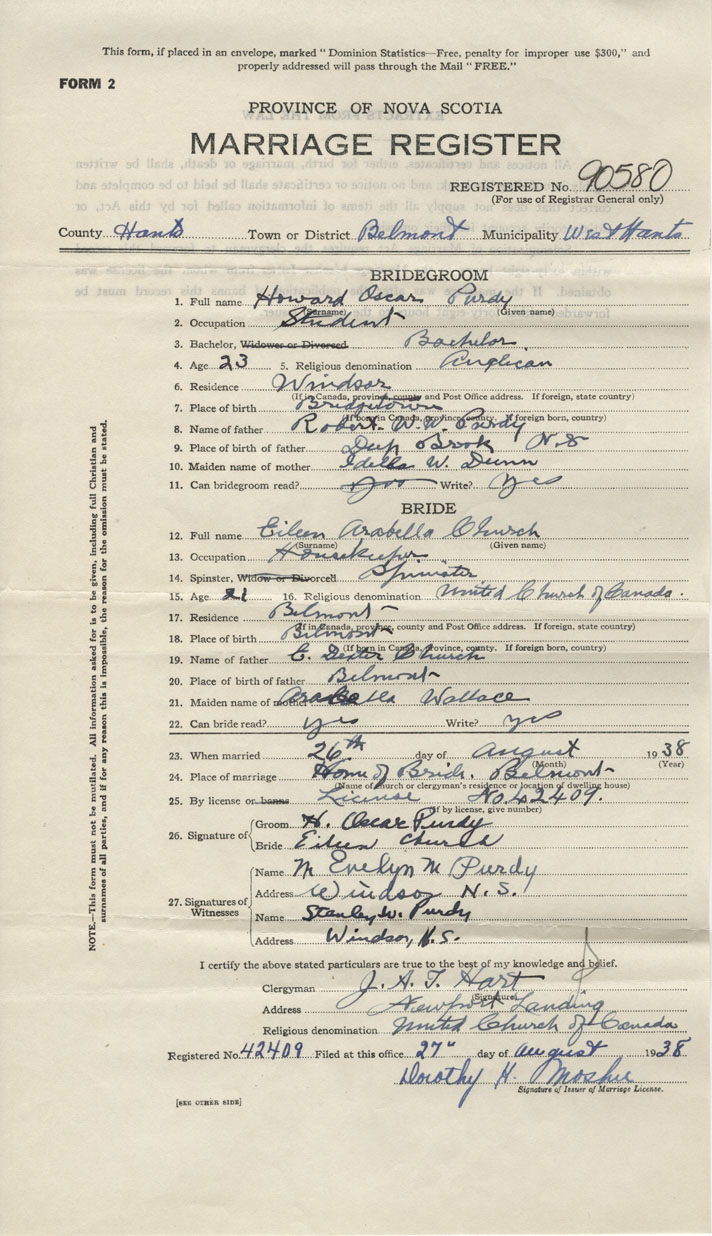 This form, if placed in an envelope, marked "Dominion Statistics—Free, penalty for improper use $300," and
properly addressed will pass through the Mail "FREE."
FORM 2
PROVINCE OF NOVA SCOTIA
MARRIAGE REGISTER
REGISTERED No. 90580
(For use of Registrar General only)
County Hants Town or District Belmont Municipality West Hants
BRIDEGROOM
1. Full name Howard Oscar Purdy
(Surname) (Given name)
2. Occupation Student
3. Bachelor, Widower or Divorced Bachelor
4. Age 23 5. Religious denomination Anglican
6. Residence Windsor
(If in Canada, province, county and Post Office address. If foreign, state country)
7. Place of birth Bridgetown
(If born in Canada, province, county. If foreign born, country)
8. Name of father Robert W. W. Purdy
9. Place of birth of father Deep Brook N.S
10. Maiden name of mother Idella W. Dunn
11. Can bridegroom read? yes Write? yes
BRIDE
12. Full name Eileen Arabella Church
(Surname) (Given name)
13. Occupation Housekeeper
14. Spinster, Widow or Divorced Spinister
15. Age 21 16. Religious denomination United Church of Canada.
17. Residence Belmont
(If in Canada, province, county and Post Office address. If foreign, state country)
18. Place of birth Belmont
(If born in Canada, province, county. If foreign born, country)
19. Name of father E. Dexter Church
20. Place of birth of father Belmont
21. Maiden name of mother Arabella Wallace
22. Can bride read? yes Write? yes
23. When married 26th day of August 1938
(Month) (Year)
24. Place of marriage Home of Bride. Belmont
(Name of church or clergyman's residence or location of dwelling house)
25. By license or banns License No. 42409.
(If by license, give number)
26. Signature of
Groom H. Oscar Purdy
Bride Eileen Church
27. Signatures of Witnesses
Name M Evelyn M Purdy
Address Windsor N.S.
Name Stanley W. Purdy
Address Windsor, N.S.
I certify the above stated particulars are true to the best of my knowledge and belief.
Clergyman J. A. T. Hart
(Signature)
Address Newport Landing
Religious denomination United Church of Canada
Registered No. 42409 Filed at this office 27" day of August 1938
Dorothy H. Mosher
Signature of Issuer of Marriage License.
[SEE OTHER SIDE]
NOTE.—This form must not be mutilated. All information asked for is to be given, including full Christian and
surnames of all parties, and if for any reason this is impossible, the reason for the omission must be stated.